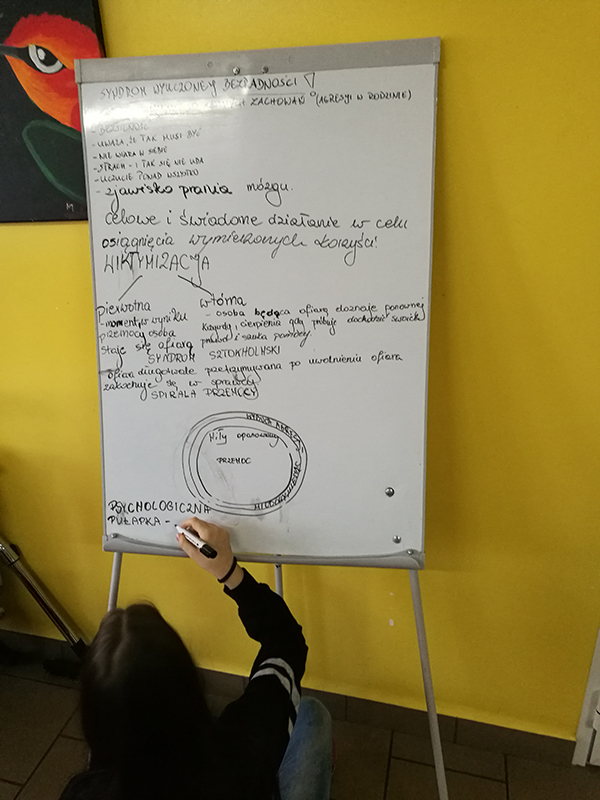 SYNDROM WYUCZONEJ BEZRADNOŚCI
ZACHOWAŃ (AGRESJI W RODZINIE)
- BEZSILNOŚĆ
- UWAŻA, ŻE TAK MUSI BYĆ
- NIE WIARA W SIEBIE
- STRACH - I TAK SIĘ NIE UDA
- UCZUCIE PONAD WSZYSTKO
- zjawisko prania mózgu.
celowe i świadome działanie w celu
osiągnięcia wymierzonych korzyści!
WIKTYMIZACJA
pierwotna
- moment, w wyniku
przemocy osoba
staje się ofiarą
wtórna
- osoba będąca ofiarą doznaje ponownej
krzywdy i cierpienia gdy próbuje dochodzić swoich
praw i szuka pomocy
SYNDROM SZTOKHOLMSKI
ofiara długotrwale przetrzymywana po uwolnieniu ofiara
zakochuje się w sprawcy
SPIRALA PRZEMOCY
WYBUCH AGRESJI
Miły opanowany
PRZEMOC
PSYCHOLOGICZNA
PUŁAPKA -
M